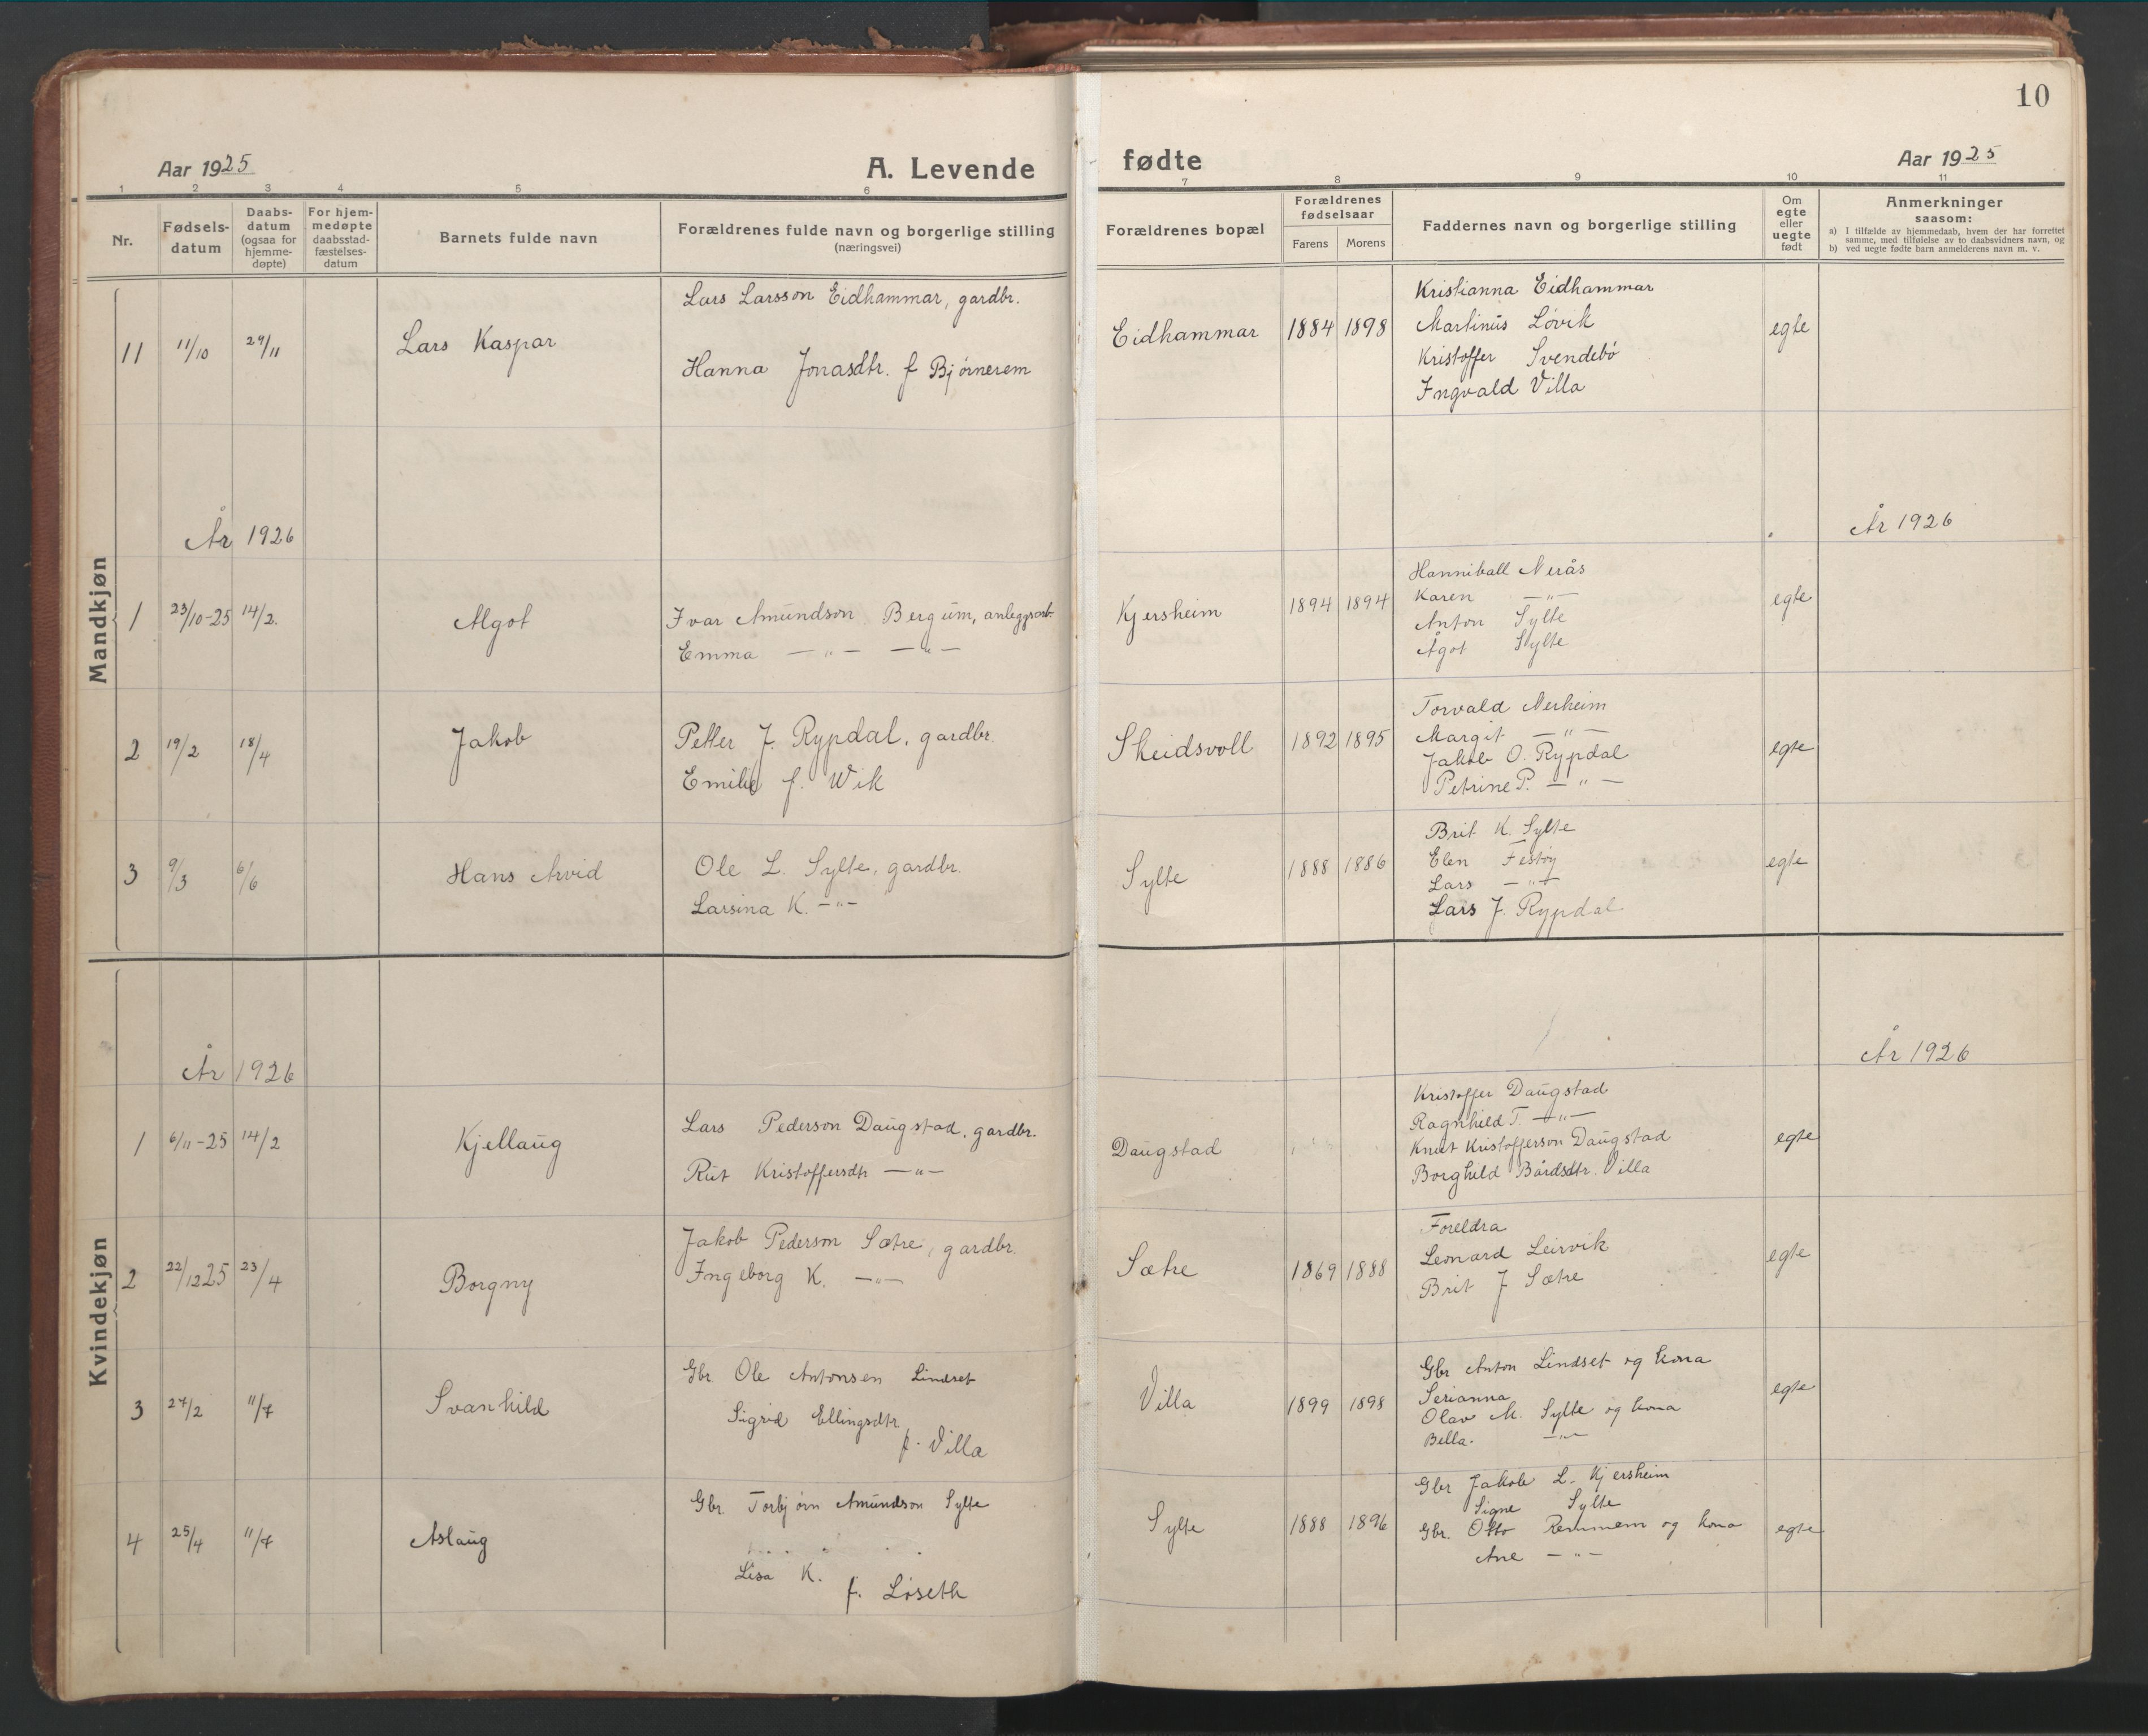 10
Aar 1925
A. Levende
fødte
Aar 1925
1 2 3 4 5 6 7 8 9 10 11
Nr.
Fødsels-
datum
Daabs-
datum
(ogsaa for
hjemme-
døpte)
For hjem-
medøpte
daabsstad-
fæstelses-
datum
Barnets fulde navn
Forældrenes fulde navn og borgerlige stilling
(næringsvei)
Forældrenes bopæl
Forældrenes
fødselsaar
Farens Morens
Faddernes navn og borgerlige stilling
Om
egte
eller
uegte
født
Anmerkninger
saasom:
a) I tilfælde av hjemmedaab, hvem der har forrettet
samme, med tilføielse av to daabsvidners navn, og
b) ved uegte fødte barn anmelderens navn m. v.
Mandkjøn
11 11/10 29/11 Lars Kaspar
Lars Larsson Eidhammar, gardbr.
Hanna Jonasdtr. f Bjørnerem
Eidhammar 1884 1898
Kristianna Eidhammar
Martinus Løvik
Kristoffer Svendebø
Ingvald Villa
egte
År 1926
År 1926
1 23/10-25 14/2. Algot
Ivar Amundson Bergum, anleggsarb.
Emma —"— —"—
Kjersheim 1894 1894
Hanniball Nerås
Karen —"—
Anton Sylte
Ågot Sylte
egte
2 19/2 18/4 Jakob
Petter J. Rypdal, gardbr.
Emilie f. Wik
Skeidsvoll 1892 1895
Torvald Nerheim
Margit —"—
Jakob O. Rypdal
Petrine P. —"—
egte
3 9/3 6/6 Hans Arvid
Ole L. Sylte, gardbr.
Larsina K. —"—
Sylte 1888 1886
Brit K. Sylte
Elen Festøy
Lars —"—
Lars J. Rypdal
egte
Kvindekjøn
År 1926
År 1926
1 6/11-25 14/2 Kjellaug
Lars Pederson Daugstad, gardbr.
Rut Kristoffersdtr —"—
Daugstad
Kristoffer Daugstad
Ragnhild T. —"—
Knut Kristofferson Daugstad
Borghild Bårdsdtr. Villa
egte
2 22/12 25 23/4 Borgny
Jakob Pederson Sætre, gardbr.
Ingeborg K. —"—
Sætre 1869 1888
Foreldra
Leonard Leirvik
Brit J Sætre
egte
3 27/2 11/7 Svanhild
Gbr. Ole Antonsen Lindset
Sigrid Ellingsdtr
f. Villa
Villa 1899 1898
Gbr Anton Lindset og kona
Serianna
Olav M. Sylte og kona
Bella. —"—
egte
4 25/4 11/7 Aslaug
Gbr. Torbjørn Amundson Sylte
Lisa K.
f. Løseth
Sylte 1888 1896
Gbr Jakob L. Kjersheim
Signe Sylte
Gbr. Otto Remmem og kona
Ane —"—
egte